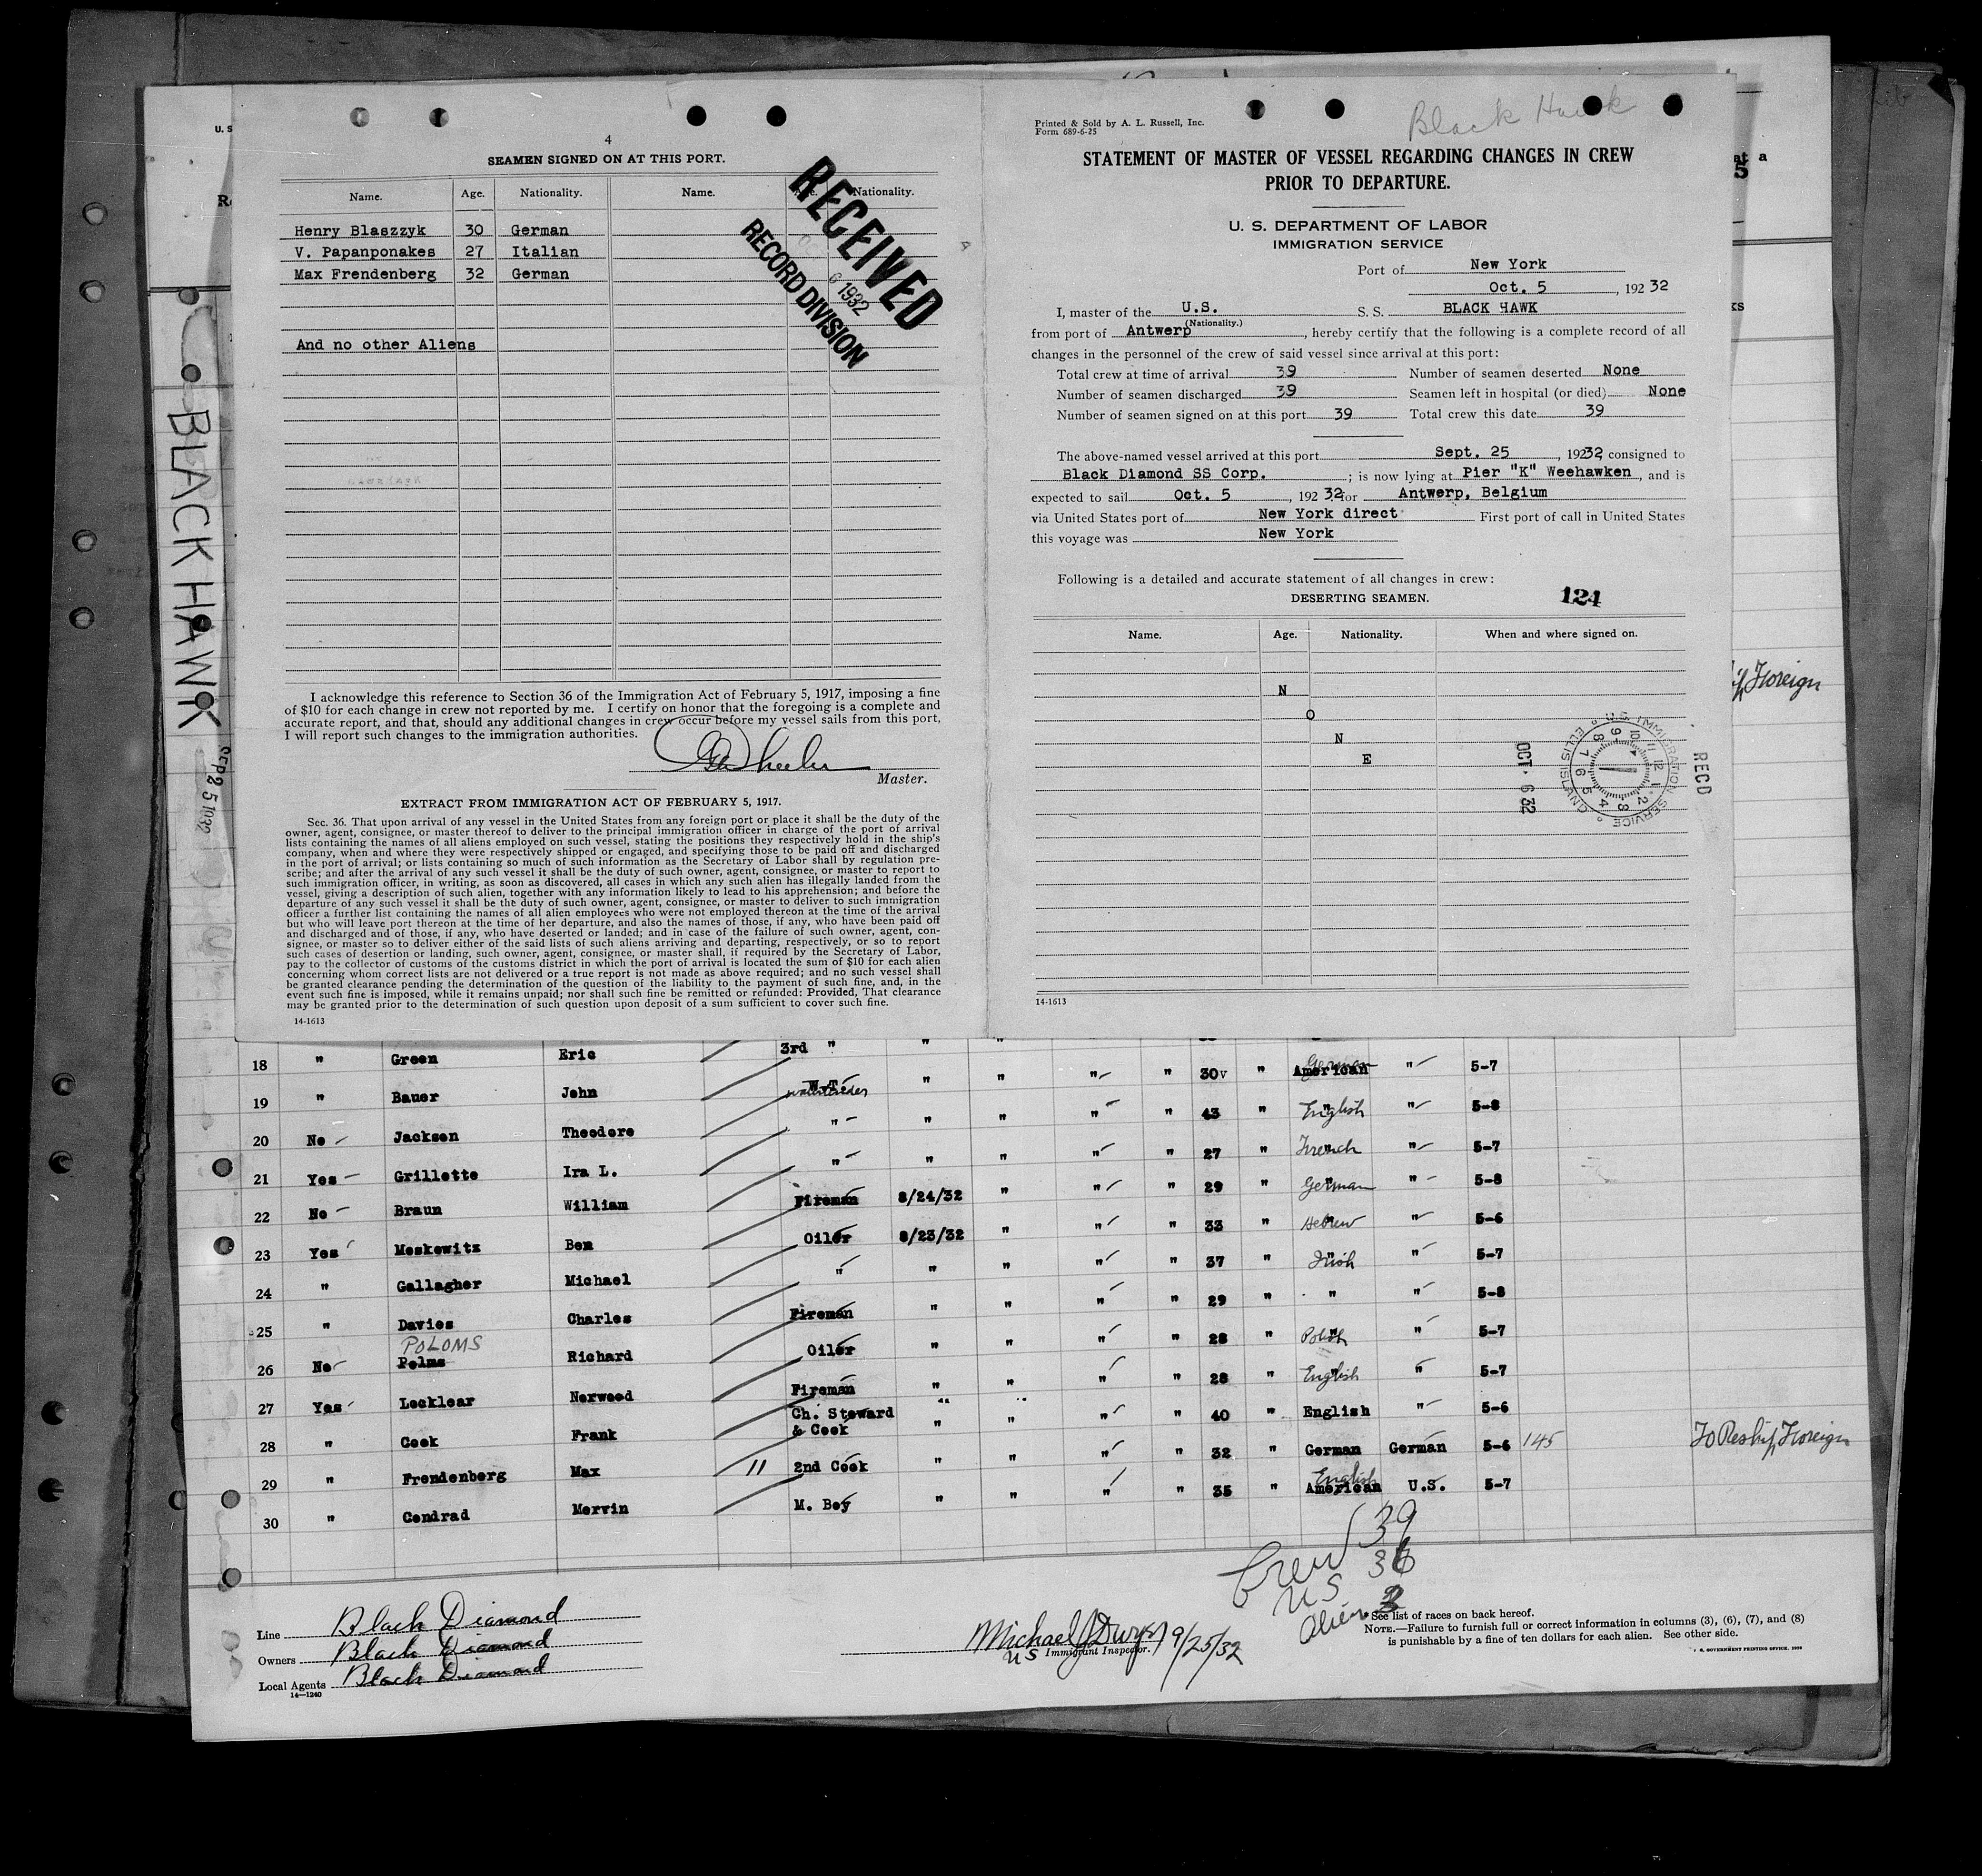 4
SEAMEN SIGNED ON AT THIS PORT.
Name. Age. Nationality. Name. Nationality.
Henry Blaszzyk 30 German
V. Papanponakes 27 Italian
Max Frendenberg 32 German
And no other Aliens
RECEIVED
6 1932
RECORD DIVISION
I acknowledge this reference to Section 36 of the Immigration Act of February 5, 1917, imposing a fine
of $10 for each change in crew not reported by me. I certify on honor that the foregoing is a complete and
accurate report, and that, should any additional changes in crew occur before my vessel sails from this port,
I will report such changes to the immigration authorities.
Master.
EXTRACT FROM IMMIGRATION ACT OF FEBRUARY 5, 1917.
Sec. 36. That upon arrival of any vessel in the United States from any foreign port or place it shall be the duty of the
owner, agent, consignee, or master thereof to deliver to the principal immigration officer in charge of the port of arrival
lists containing the names of all aliens employed on such vessel, stating the positions they respectively hold in the ship's
company, when and where they were respectively shipped or engaged, and specifying those to be paid off and discharged
in the port of arrival; or lists containing so much of such information as the Secretary of Labor shall by regulation pre-
scribe; and after the arrival of any such vessel it shall be the duty of such owner, agent, consignee, or master to report to
such immigration officer, in writing, as soon as discovered, all cases in which any such alien has illegally landed from the
vessel, giving a description of such alien, together with any information likely to lead to his apprehension; and before the
departure of any such vessel it shall be the duty of such owner, agent, consignee, or master to deliver to such immigration
officer a further list containing the names of all alien employees who were not employed thereon at the time of the arrival
but who will leave port thereon at the time of her departure, and also the names of those, if any, who have been paid off
and discharged and of those, if any, who have deserted or landed; and in case of the failure of such owner, agent, con-
signee, or master so to deliver either of the said lists of such aliens arriving and departing, respectively, or so to report
such cases of desertion or landing, such owner, agent, consignee, or master shall, if required by the Secretary of Labor,
pay to the collector of customs of the customs district in which the port of arrival is located the sum of $10 for each alien
concerning whom correct lists are not delivered or a true report is not made as above required; and no such vessel shall
be granted clearance pending the determination of the question of the liability to the payment of such fine, and, in the
event such fine is imposed, while it remains unpaid; nor shall such fine be remitted or refunded: Provided, That clearance
may be granted prior to the determination of such question upon deposit of a sum sufficient to cover such fine.
14-1613
Black Hawk
Printed & Sold by A. L. Russell, Inc.
Form 689-6-25
STATEMENT OF MASTER OF VESSEL REGARDING CHANGES IN CREW
PRIOR TO DEPARTURE.
U. S. DEPARTMENT OF LABOR
IMMIGRATION SERVICE
Port of New York
Oct. 5, 192 32
I, master of the U.S. S. S. BLACK HAWK
(Nationality.)
from port of Antwerp, hereby certify that the following is a complete record of all
changes in the personnel of the crew of said vessel since arrival at this port:
Total crew at time of arrival 39 Number of seamen deserted None
Number of seamen discharged 39 Seamen left in hospital (or died) None
Number of seamen signed on at this port 39 Total crew this date 39
The above-named vessel arrived at this port Sept. 25, 19232 consigned to
Black Diamond SS Corp.; is now lying at Pier "K" Weehawken, and is
expected to sail Oct. 5, 192 32 for Antwerp, Belgium
via United States port of New York direct First port of call in United States
this voyage was New York
Following is a detailed and accurate statement of all changes in crew:
DESERTING SEAMEN. 124
Name. Age. Nationality. When and where signed on.
N
O
N
E
RECD
U.S. IMMIGRATION SERVICE
ELLIS ISLAND
OCT. 6 32
14-1613
BLACK HAWK
SEP 25 1932
Foreign
18 " Green Eric 3rd " " "
19 " Bauer John W.T. watertender " " " " 30 " German American " 5-7
20 No Jackson Theodore " " " " " 43 " English " 5-8
21 Yes Grillette Ira L. " " " " " 27 " French " 5-7
22 No Braun William Fireman 8/24/32 " " " 29 " German " 5-8
23 Yes Moskewitz Ben Oiler 8/23/32 " " " 33 " Hebrew " 5-6
24 " Gallagher Michael " " " " " 37 " Irish " 5-7
25 " Davies Charles Fireman " " " " 29 " " " 5-8
POLOMS
26 No Polms Richard Oiler " " " " 28 " Polish " 5-7
27 Yes Locklear Norwood Fireman " " " " 28 " English " 5-7
28 " Cook Frank Ch. Steward & Cook " " " " 40 " English " 5-6
29 " Frendenberg Max 11 2nd Cook " " " " 32 " German German 5-6 145 To Reship Foreign
30 " Condrad Mervin M. Boy " " " " 35 " English American U.S. 5-7
Crew 39
US 36
Alien 3
Line Black Diamond
Owners Black Diamond
Local Agents Black Diamond
14-1240
Michael J Dwyer 9/25/32
US Immigrant Inspector.
See list of races on back hereof.
NOTE.—Failure to furnish full or correct information in columns (3), (6), (7), and (8)
is punishable by a fine of ten dollars for each alien. See other side.